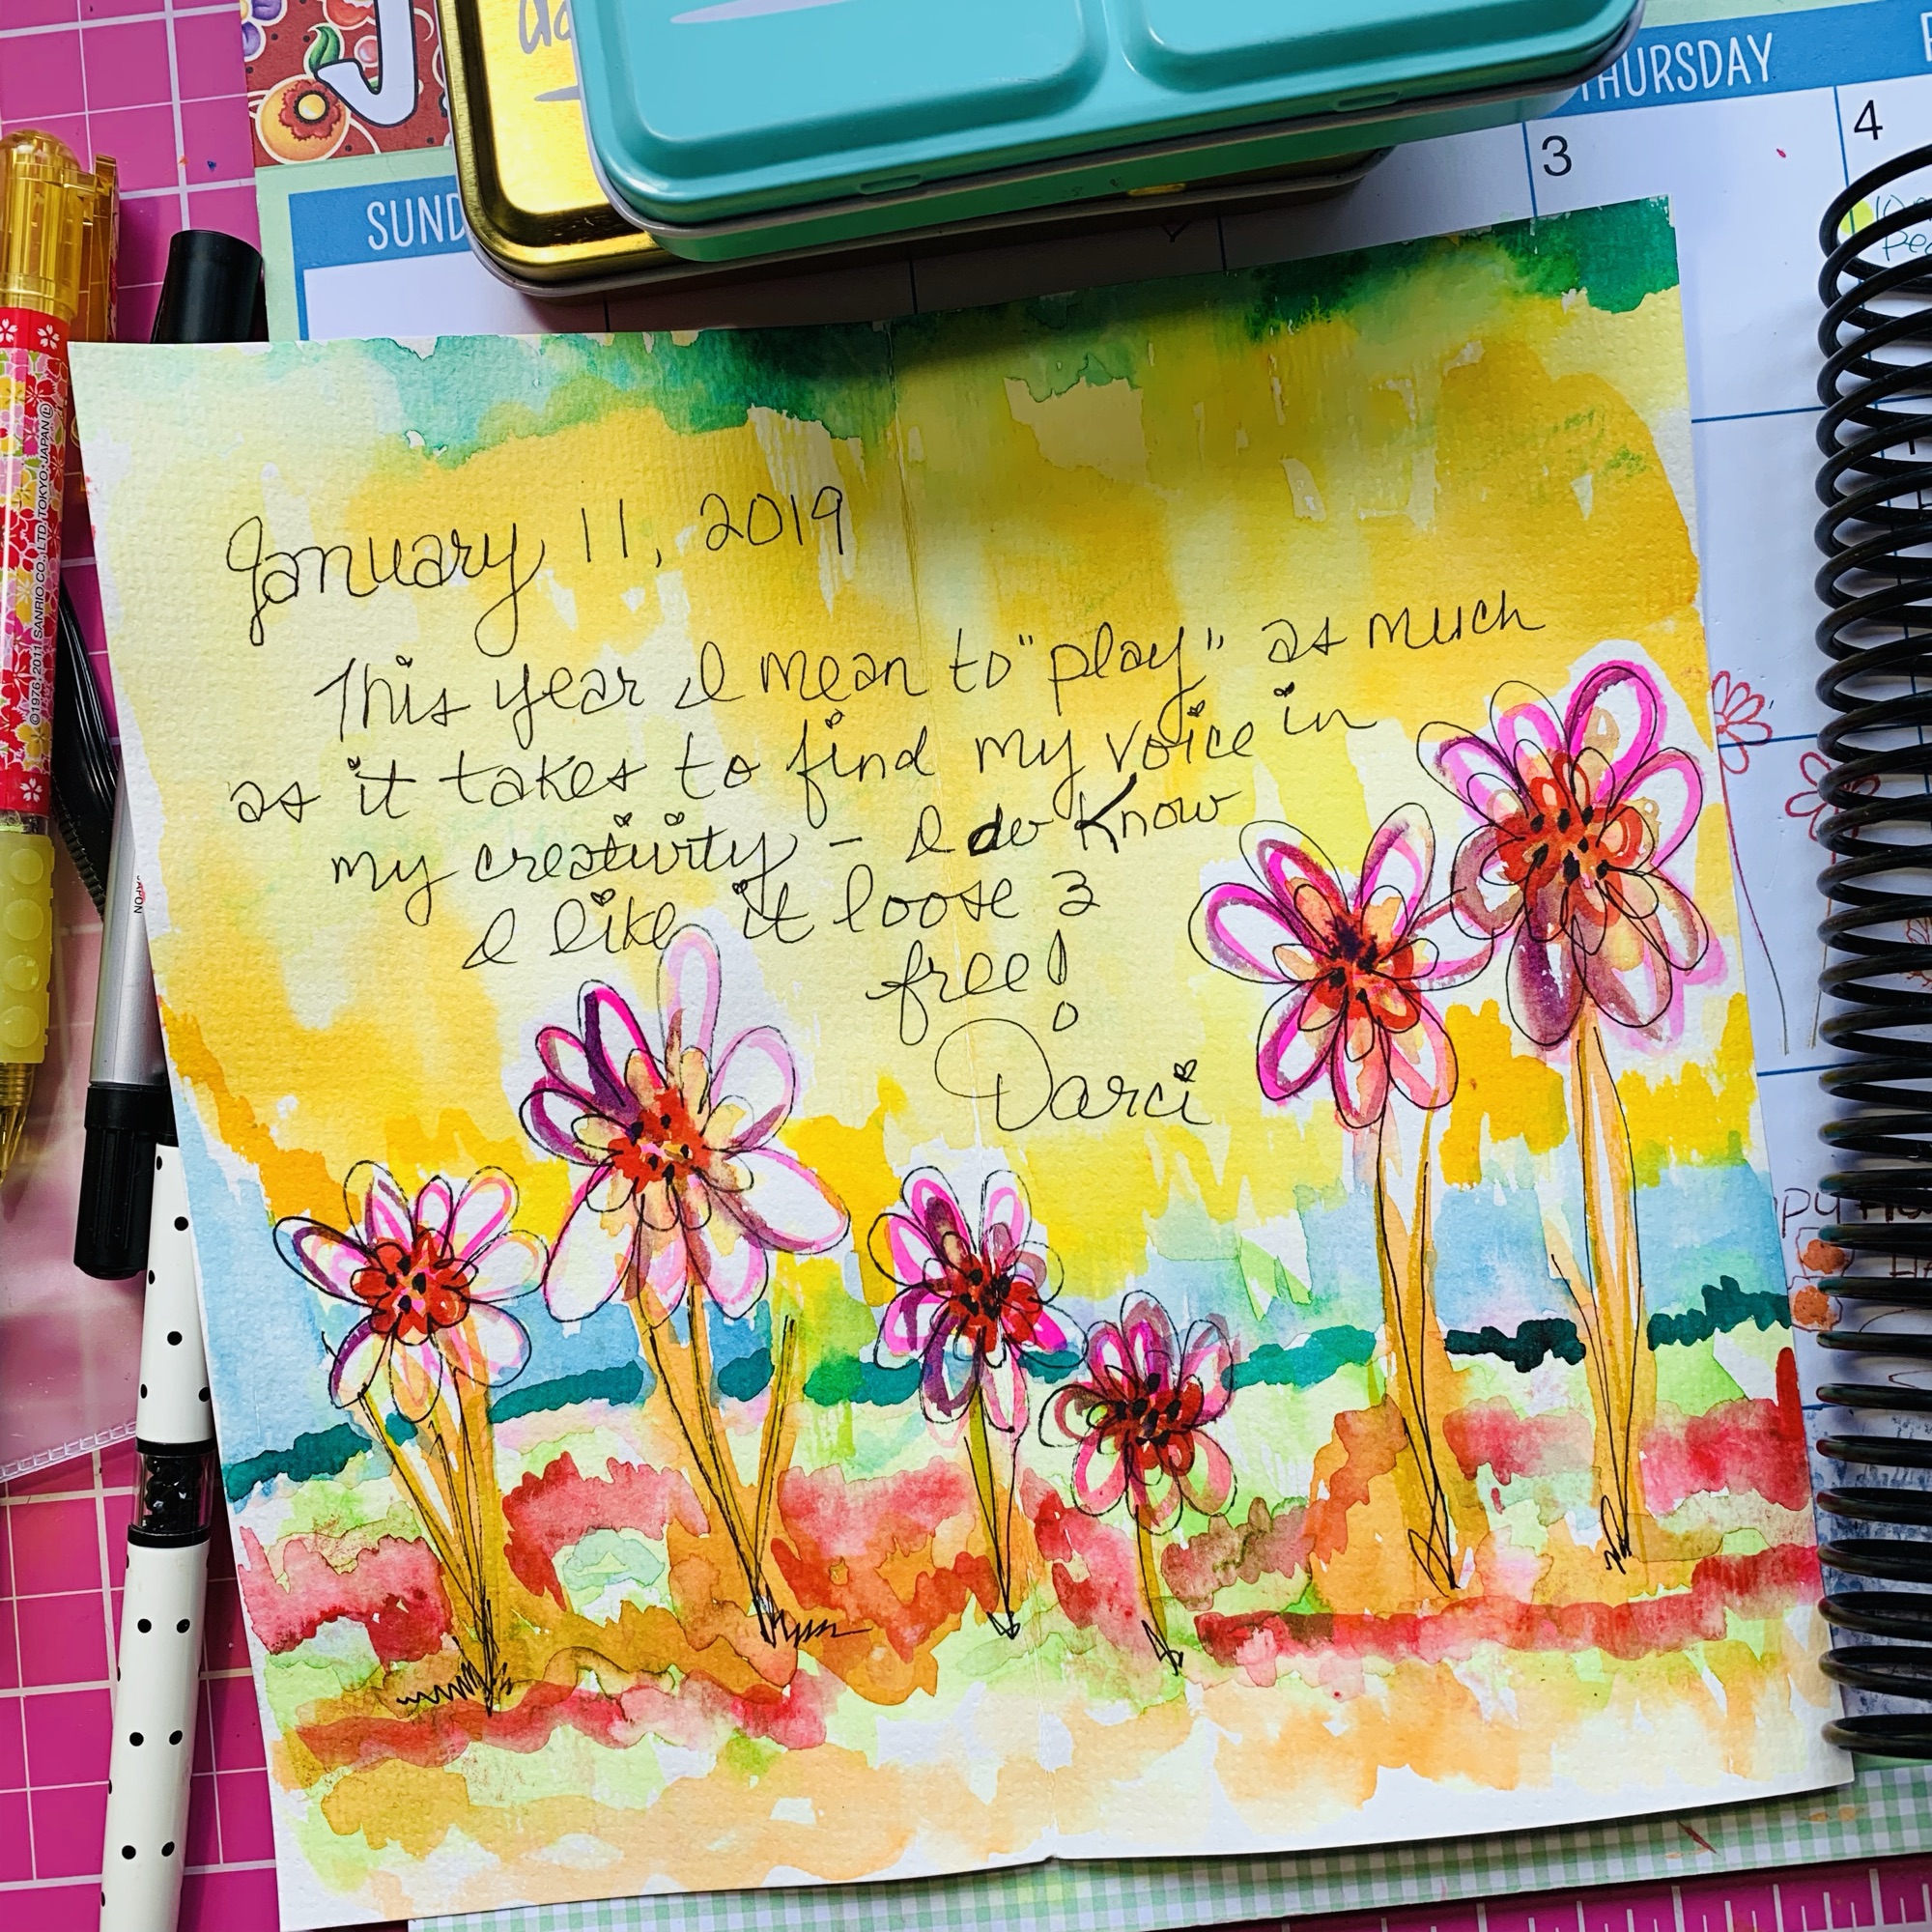 SUND
HURSDAY
3
4
©1976, 2011 SANRIO CO., LTD. TOKYO, JAPAN Ⓛ
JAPON
January 11, 2019
This year I mean to "play" as much
as it takes to find my voice in
my creativity - I do know
I like it loose &
free!
Darci